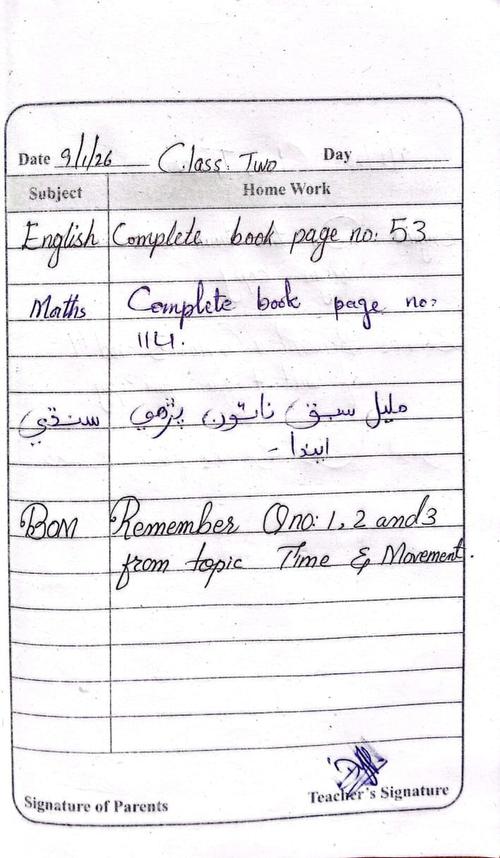 Date 9/1/26 Class Two Day
Subject Home Work
English Complete book page no: 53
Maths Complete book page no:
114.
سنڌي مليل سبق ناٽون پڙهي
ايندا -
BOM Remember Q no: 1, 2 and 3
from topic Time & Movement.
Signature of Parents Teacher's Signature